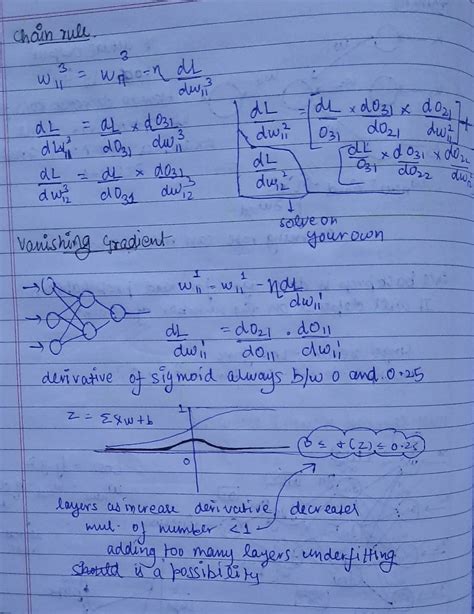 Chain rule.
w₁₁³ = w₁₁³ - η dL/dw₁₁³
dL/dw₁₁³ = dL/dO₃₁ × dO₃₁/dw₁₁³
dL/dw₁₂³ = dL/dO₃₁ × dO₃₁/dw₁₂³
dL/dw₁₁² = [dL/O₃₁ × dO₃₁/dO₂₁ × dO₂₁/dw₁₁²] +
dL/dw₁₂² [dL/O₃₁ × dO₃₁/dO₂₂ × dO₂₂/dw₁₂²
solve on
your own
Vanishing Gradient
w₁₁¹ = w₁₁¹ - η dL/dw₁₁¹
dL/dw₁₁¹ = dO₂₁/dO₁₁ . dO₁₁/dw₁₁¹
derivative of sigmoid always b/w 0 and 0.25
z = Σxw+b
1
0 ≤ σ(z) ≤ 0.25
0
layers as increase derivative decreases
mul. of number <1
adding too many layers underfitting
is a possibility